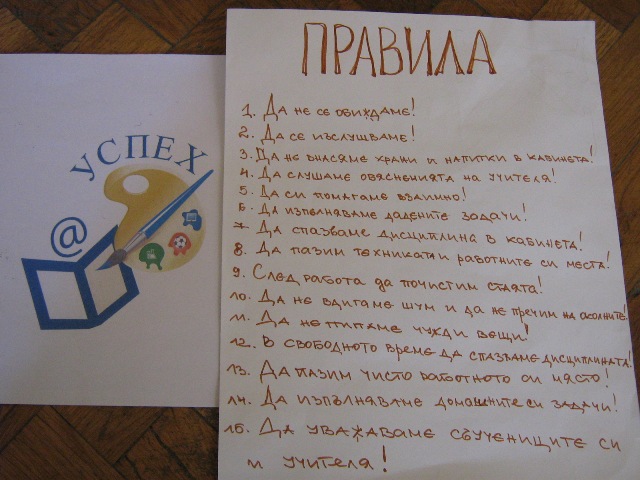 УСПЕХ
@
ПРАВИЛА
1. Да не се обиждаме!
2. Да се изслушваме!
3. Да не внасяме храни и напитки в кабинета!
4. Да слушаме обясненията на учителя!
5. Да си помагаме взаимно!
6. Да изпълняваме дадените задачи!
7. Да спазваме дисциплина в кабинета!
8. Да пазим техниката и работните си места!
9. След работа да почистим стаята!
10. Да не вдигаме шум и да не пречим на околните!
11. Да не пипаме чужди вещи!
12. В свободното време да спазваме дисциплината!
13. Да пазим чисто работното си място!
14. Да изпълняваме домашните си задачи!
15. Да уважаваме съучениците си
и учителя!